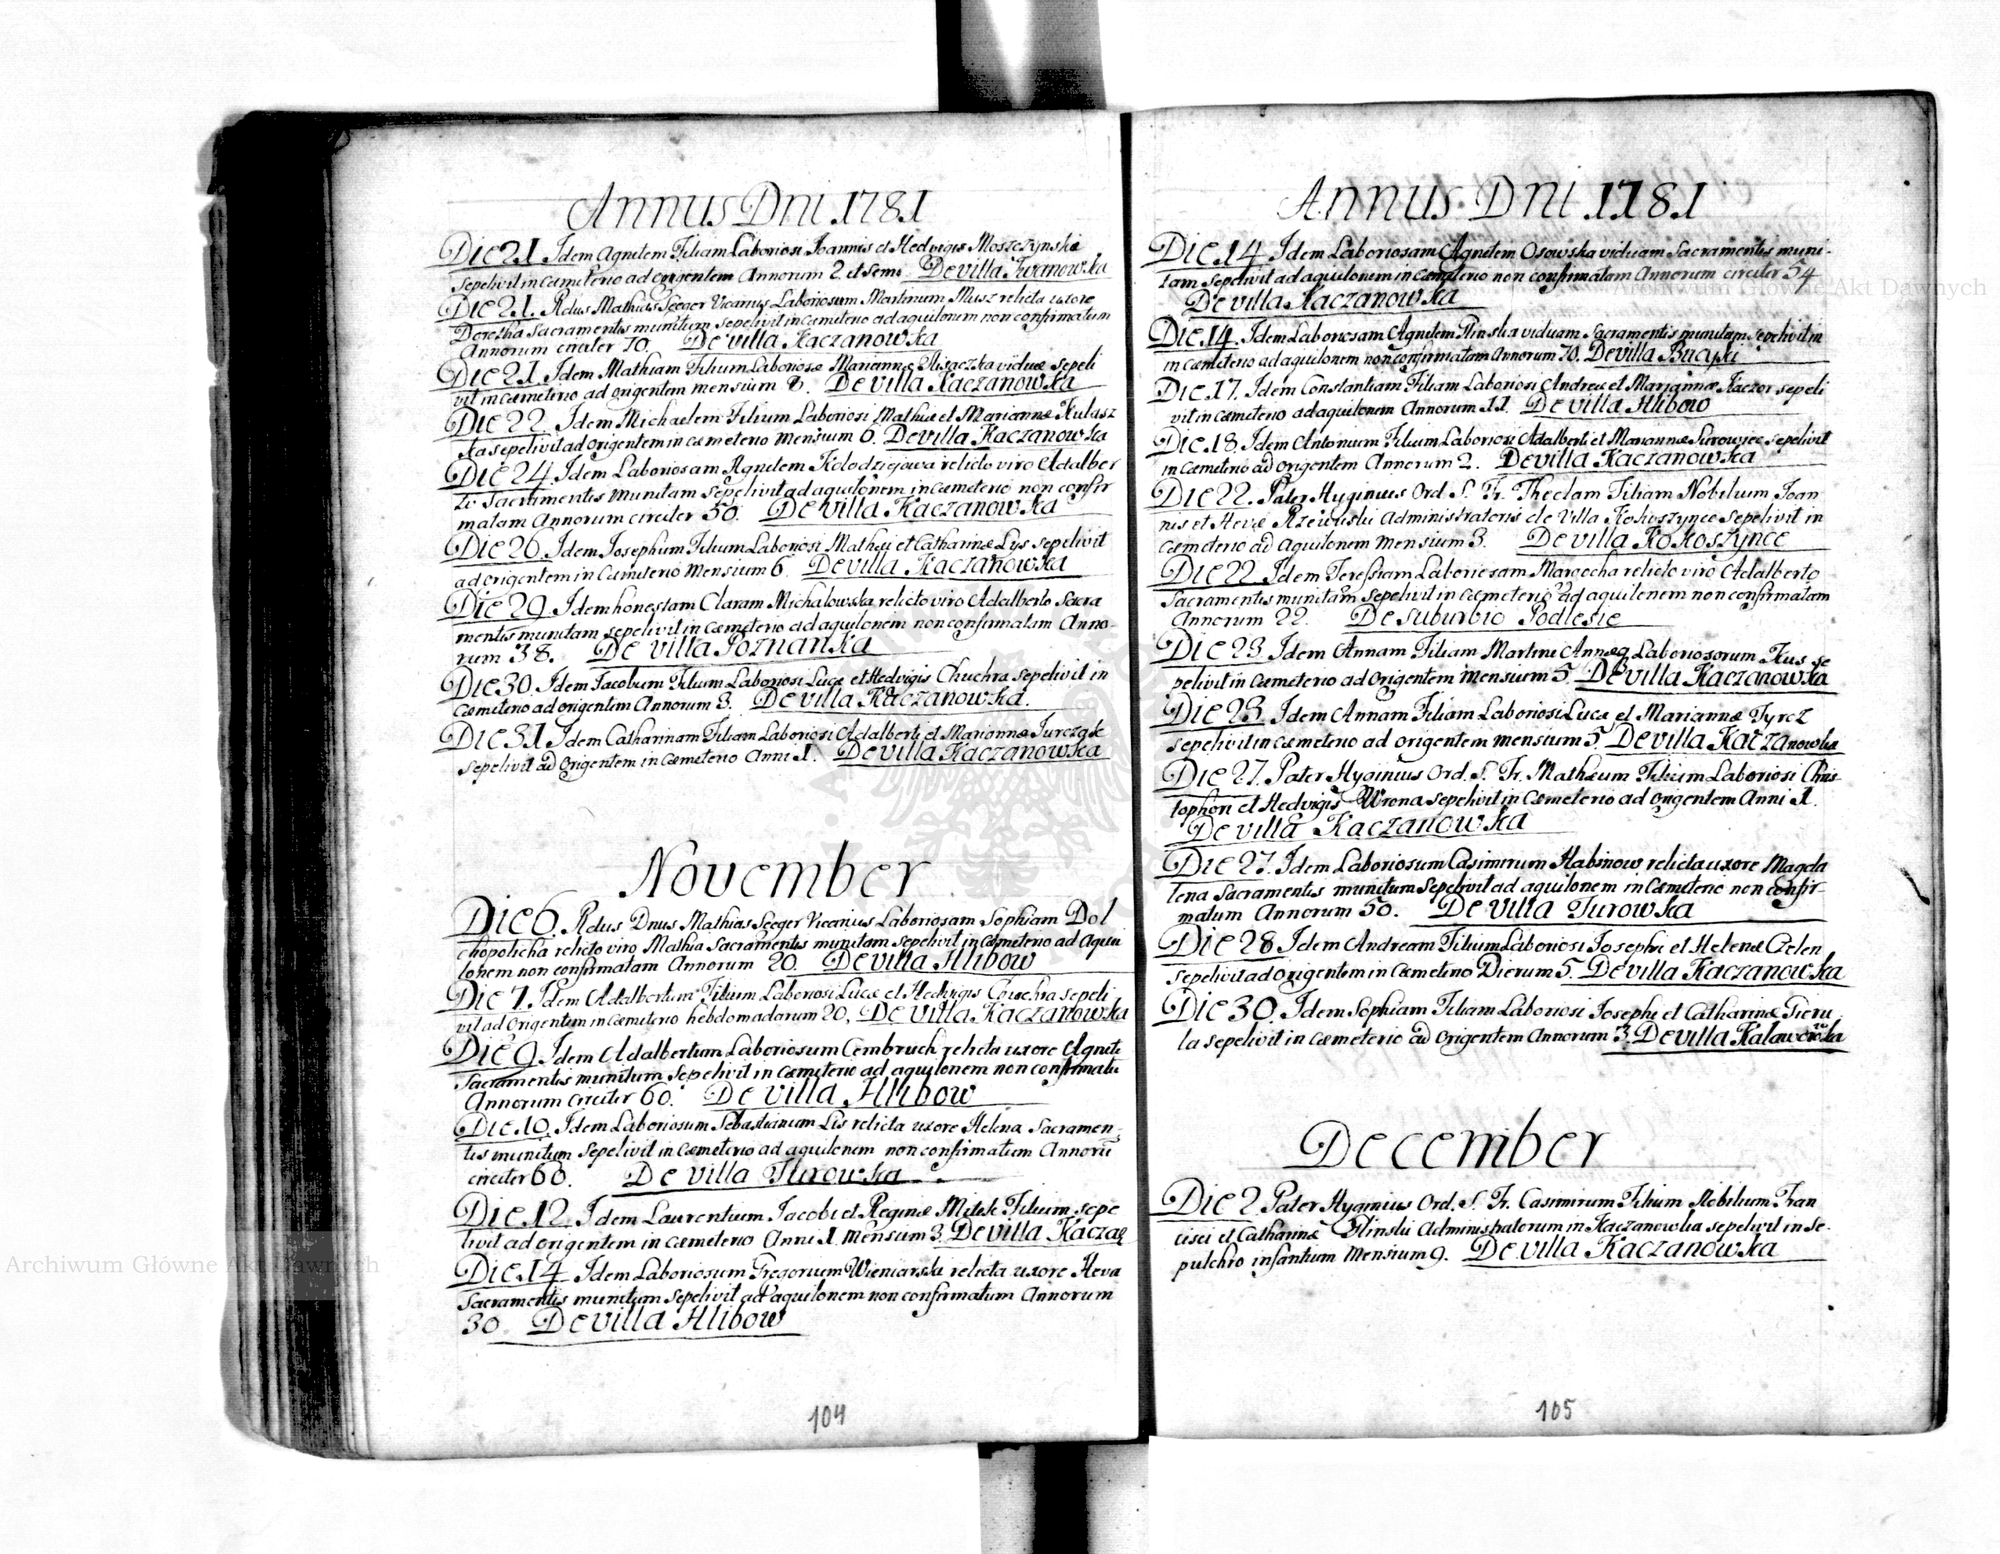 Annus Dni 1781
Die 21. Idem Agnetem Filiam Laboriosi Joannis et Hedvigis Moszczynskie
sepelivit in cæmeterio ad origentem Annorum 2 et semi. De villa Iwanowska
Die 21. Rdus Mathias Seeger Vicarius Laboriosum Martinum Musz relicta uxore
Dorotha Sacramentis munitum sepelivit in cæmeterio ad aquilonem non confirmatum
Annorum circiter 70. De villa Kaczanowska
Die 21. Idem Mathiam Filium Laboriosæ Mariannæ viduæ sepeli
vit in cæmeterio ad origentem mensium 8. De villa Kaczanowska
Die 22. Idem Michaelem Filium Laboriosi Mathiæ et Mariannæ Kulasz
ka sepelivit ad origentem in cæmeterio mensium 6. De villa Kaczanowska
Die 24. Idem Laboriosam Agnetem Kolodziejowa relicto viro Adalber
to Sacramentis munitam sepelivit ad aquilonem in cæmeterio non confir
matam Annorum circiter 50. De villa Kaczanowska
Die 26. Idem Josephum Filium Laboriosi Mathæi et Catharinæ Lys sepelivit
ad origentem in Cæmeterio Mensium 6. De villa Kaczanowska
Die 29. Idem honestam Claram Michalowska relicto viro Adalberto Sacra
mentis munitam sepelivit in cæmeterio ad aquilonem non confirmatam Anno-
rum 38. De villa Poznanka
Die 30. Idem Jacobum Filium Laboriosi Lucæ et Hedvigis Chuchra sepelivit in
Cæmeterio ad origentem Annorum 3. De villa Kaczanowska.
Die 31. Idem Catharinam Filiam Laboriosi Adalberti et Mariannæ Jurczak
sepelivit ad Origentem in Cæmeterio Anni 1. De villa Kaczanowska
November
Die 6. Rdus Dnus Mathias Seeger Vicarius Laboriosam Sophiam Dol
chopolicha relicto viro Mathia Sacramentis munitam sepelivit in cæmeterio ad Aqui
lonem non confirmatam Annorum 20. De villa Hlibow
Die 7. Idem Adalbertum Filium Laboriosi Lucæ et Hedvigis Chuchra sepeli
vit ad Origentem in cæmiterio hebdomadarum 20, De villa Kaczanowska
Die 9. Idem Adalbertum Laboriosum Cembruch relicta uxore Agnete
Sacramentis munitum sepelivit in cæmeterio ad aquilonem non confirmatu
Annorum circiter 60. De villa Hlibow
Die 10. Idem Laboriosum Sebastianum Lis relicta uxore Helena Sacramen-
tis munitum sepelivit in Cæmeterio ad aquilonem non confirmatum Annorū
circiter 60. De villa Turowka
Die 12. Idem Laurentium Jacobi et Reginæ Mitek Filium sepe
livit ad origentem in cæmeterio Anni 1. mensium 3. De villa Kaczae
Die 14. Idem Laboriosum Gregorium Wieniarski relicta uxore Heva
Sacramentis munitum sepelivit ad aquilonem non confirmatum Annorum
30. De villa Hlibow
104
Annus Dni 1781
Die 14. Idem Laboriosam Agnetem Osowska viduam Sacramentis muni-
tam sepelivit ad aquilonem in cæmeterio non confirmatam Annorum circiter 54
De villa Kaczanowska
Die 14. Idem Laboriosam Agnetem viduam Sacramentis munitam sepelivit in
in cæmeterio ad aquilonem non confirmatam Annorum 70. De villa Bucyki
Die 17. Idem Constantiam Filiam Laboriosi Andreæ et Mariannæ Kaczor sepeli
vit in cæmeterio ad aquilonem Annorum 11. De villa Hlibow
Die 18. Idem Antonium Filium Laboriosi Adalberti et Mariannæ Surowiec sepelivit
in Cæmeterio ad Origentem Annorum 2. De villa Kaczanowska
Die 22. Pater Hyginius Ord. S. Fr. Theclam Filiam Nobilium Joan
nis et Hevæ Rzewuski Administratoris de Villa Kokoszynce sepelivit in
Cæmeterio ad Aquilonem mensium 3. De villa Kokoszynce
Die 22. Idem Teressiam Laboriosam Margocha relicto viro Adalberto
Sacramentis munitam sepelivit in cæmeterio ad aquilonem non confirmatam
Annorum 22. De suburbio Podlesie
Die 23. Idem Annam Filiam Martini Annæq Laboriosorum Kus se
pelivit in Cæmeterio ad Origentem mensium 5. De villa Kaczanowska
Die 23. Idem Annam Filiam Laboriosi Lucæ et Mariannæ Tyrcz
sepelivit in cæmeterio ad origentem mensium 5. De villa Kaczanowska
Die 27. Pater Hyginius Ord. S. Fr. Mathæum Filium Laboriosi Chris
tophori et Hedvigis Wrona sepelivit in Cæmeterio ad origentem Anni 1.
De villa Kaczanowska
Die 27. Idem Laboriosum Casimirum Habinow relicta uxore Magda
lena Sacramentis munitum sepelivit ad aquilonem in Cæmeterio non confir-
matum Annorum 50. De villa Turowka
Die 28. Idem Andream Filium Laboriosi Josephi et Helenæ Celen
sepelivit ad origentem in Cæmeterio Dierum 5. De villa Kaczanowska
Die 30. Idem Sophiam Filiam Laboriosi Josephi et Catharinæ Pieru
la sepelivit in Cæmeterio ad Origentem Annorum 3. De villa
December
Die 2. Pater Hyginius Ord. S. Fr. Casimirum Filium Nobilium Fran
cisci et Catharinæ Glinski Administratorum in Kaczanowka sepelivit in Se-
pulchro infantium Mensium 9. De villa Kaczanowska
105
Archiwum Główne Akt Dawnych
Archiwum Główne Akt Dawnych